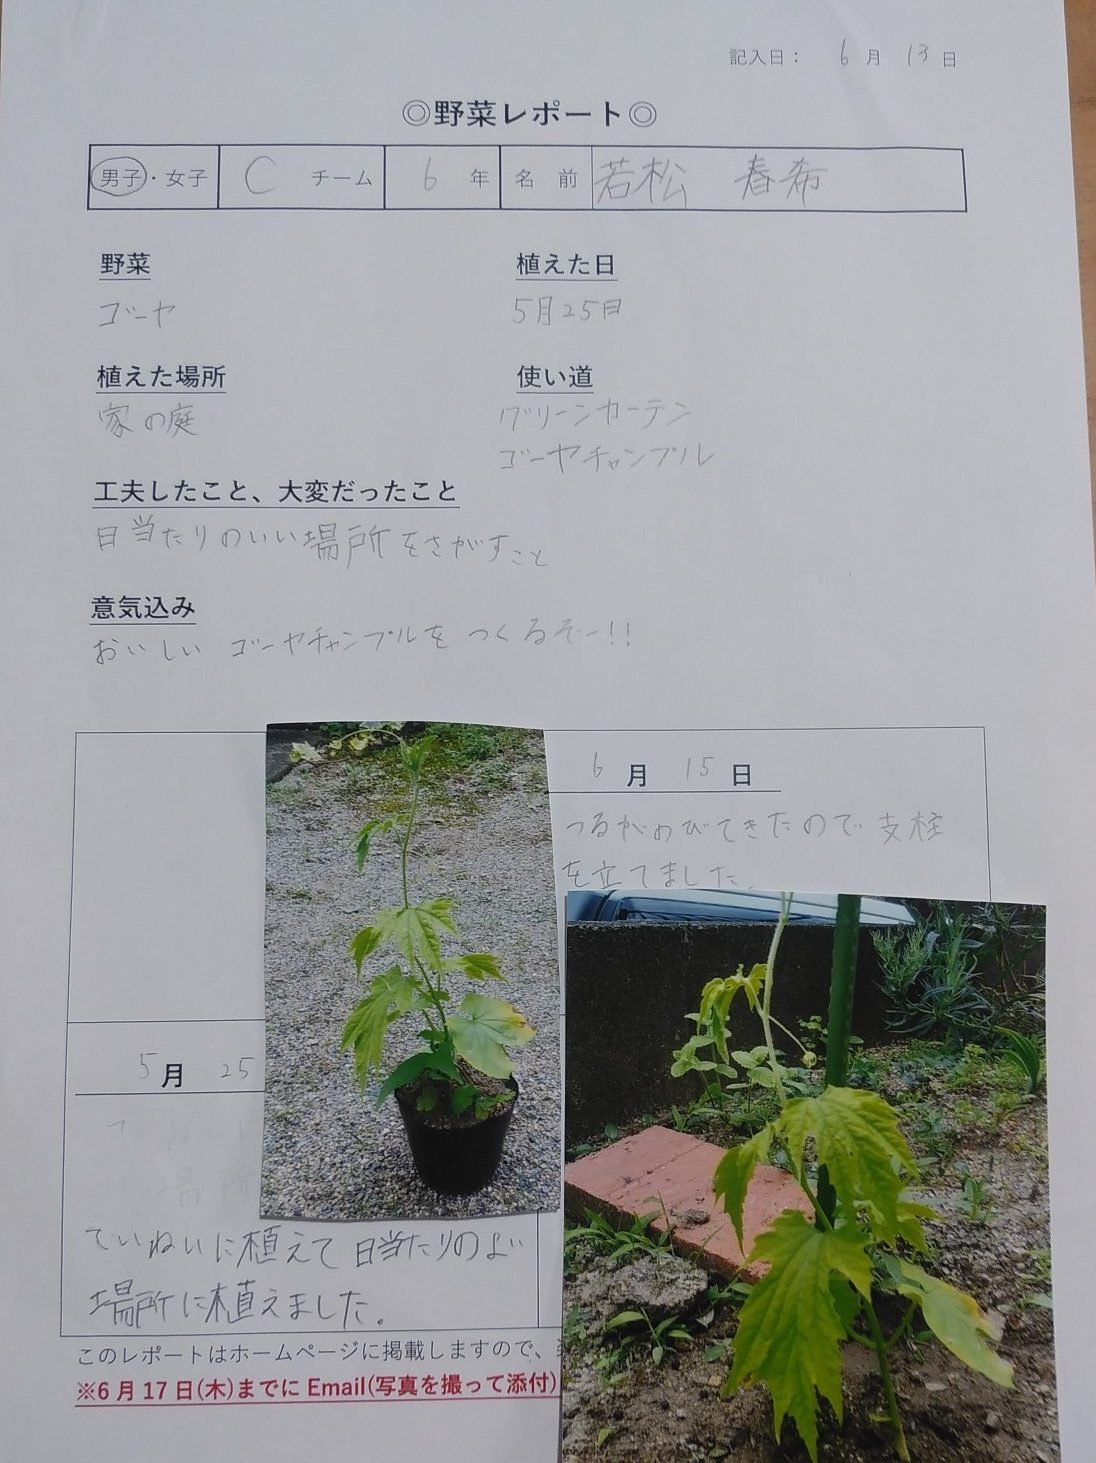 記入日： 6 月 13 日
◎野菜レポート◎
男子・女子 C チーム 6 年 名 前 若松 春希
野菜
ゴーヤ
植えた日
5月25日
植えた場所
家の庭
使い道
グリーンカーテン
ゴーヤチャンプル
工夫したこと、大変だったこと
日当たりのいい場所をさがすこと
意気込み
おいしい ゴーヤチャンプルを つくるぞー!!
6 月 15 日
つるがのびてきたので支柱
を立てました。
5 月 25
ていねいに植えて 日当たりのよい
場所に植えました。
このレポートはホームページに掲載しますので、
※6月17日(木)までにEmail(写真を撮って添付)